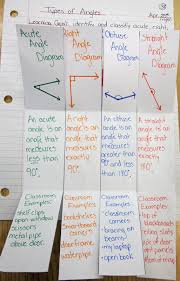 Types of Angles
Learning Goal: identify and classify acute, right,
Acute
Angle
Diagram
Right
Angle
Diagram
Obtuse
Angle
Diagram
Straight
Angle
Diagram
An acute
angle is an
angle that
measures
less than
90°.
A right
angle is an
angle that
measures
exactly
90°.
An obtuse
angle is an
angle that
measures
greater than
90° and less
than 180°.
A straight
angle is an
angle that
measures
exactly
180°.
Classroom
Examples:
shelf clips
open window
scissors
metal pipe
above door
Classroom
Examples:
bookshelves
corners
door frame
waterpipe
Classroom
Examples:
corners
tracing on
beams
laptop
open book
Classroom
Examples:
top of
blackboards